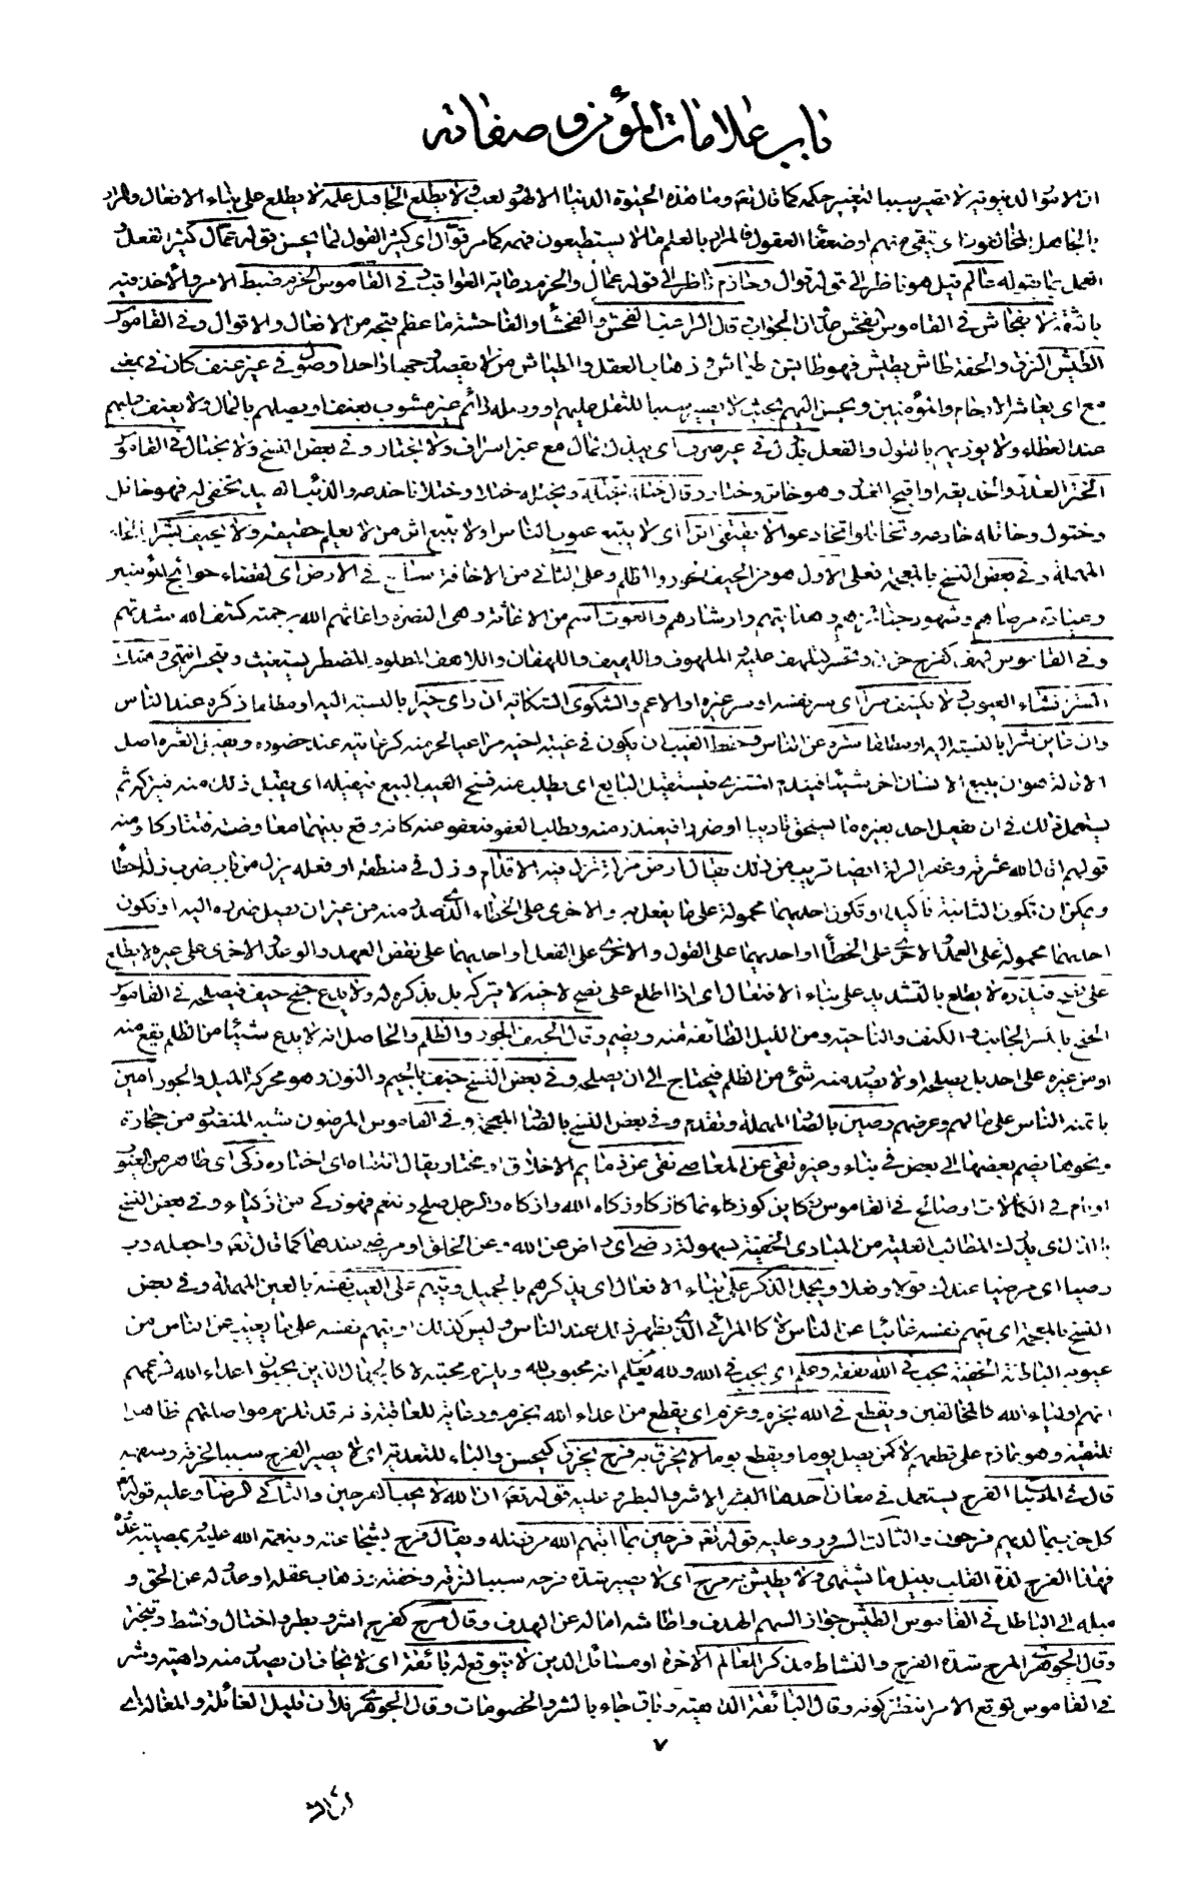 باب علامات المؤمن و صفاته
ان الامور الدنيوية لا تصير سببا لتغير حكمه كما قال تعه وما هذه الحيوة الدنيا الا لهو ولعب ولا يطلع الجاهل علمه لا يطلع على بناء الافعال والمراد
بالجاهل المخالفون اى يتقى منهم او ضعفاء العقول فالمراد بالعلم ما لا يستطيعون فهمه كما مر قوال اى كثير القول لما يحسن قوله عمال كثير الفعل و
العمل بما يقوله عالم قيل هو ناظر الى قوله قوال وحازم ناظر الى قوله عمال والحزم رعاية العواقب و فى القاموس الحزم ضبط الامر والاخذ فيه
بالثقة لا بفحاش فى القاموس الفحش عدوان الجواب قال الراغب الفحش والفحشاء والفاحشة ما عظم قبحه من الافعال والاقوال وفى القاموس
الطيش النزق والخفة طاش يطيش فهو طائش وطياش و ذهاب العقل والطياش من لا يقصد وجها واحدا وصول فى غير عنف كان فى بمعنى
مع اى يعاشر الارحام والمؤمنين ويحسن اليهم بحيث لا يصير سببا للثقل عليهم او وصله دائم غير مشوب بعنف او يصلهم بالمال ولا يعنف عليهم
عند العطاء ولا يوذيهم بالقول والفعل بذل فى غير سرف اى يبذل المال مع غير اسراف ولا بختار و فى بعض النسخ ولا بختال فى القاموس
الختر الغدر والخديعة او اقبح الغدر وهو خاتر وختار وقال ختله يختله ويختله ختلا وختلانا خدعه والذئب الصيد تخفى له فهو خاتل
وختول وخاتله خادعه وتخاتلوا تخادعوا لا يقتفى اثرا اى لا يتبع عيوب الناس او لا يتبع اثر من لا يعلم حقيقته ولا يحيف بشرا بالحاء
المهملة و فى بعض النسخ بالمعجمة فعلى الاول هو من الحيف الجور والظلم وعلى الثانى من الاخافة ساع فى الارض اى لقضاء حوائج المؤمنين
وعيادة مرضاهم وشهود جنائزهم وهدايتهم وارشادهم والغوث اسم من الاغاثة وهى النصرة واغاثهم الله برحمته كشف الله شدتهم
وفى القاموس لهف كفرح حزن وتحسر كتلهف عليه و الملهوف واللهيف واللهفان واللاهف المظلوم المضطر يستغيث ويتحسر انتهى وهتك
الستر افشاء العيوب ولا يكشف سرا اى سر نفسه او سر غيره او الاعم والشكوى الشكاية ان راى خيرا بالنسبة اليه او مطلقا ذكره عند الناس
وان عاين شرا بالنسبة اليه او مطلقا ستره عن الناس وحفظ الغيب ان يكون فى غيبة اخيه مراعيا لحرمته كرعايته عند حضوره ويقيل العثرة اصل
الاقالة هو ان يبيع الانسان اخر شيئا فيندم المشترى فيستقيل البايع اى يطلب منه فسخ البيع فيقيله اى يقبل ذلك منه فيتركه ثم
يستعمل ذلك فى ان يفعل احد بغيره ما يستحق تاديبا او ضررا فيعتذر منه ويطلب العفو فيعفو عنه كانه وقع بينهما معاوضة فتتاركا ومنه
قولهم اقال الله عثرته وغفر الزلة ايضا قريب من ذلك يقال ارض مزلة تزل فيه الاقدام و زل فى منطقه او فعله يزل من باب ضرب زلة اخطأ
ويمكن ان تكون الثانية تأكيدا او تكون احديهما محمولة على ما يفعل به والاخرى على الخطاء الذى صدر منه من غير ان يصل ضرره اليه او تكون
احديهما محمولة على العمد والاخرى على الخطأ او احديهما على القول والاخرى على الفعل او احديهما على نقض العهد والوعد والاخرى على غيره لا يطلع
على نصح فيذره لا يطلع بالتشديد على بناء الافتعال اى اذا اطلع على نصح لاخيه لا يتركه بل يذكره له ولا يدع جنح حيف فيصلحه فى القاموس
الجنح بالكسر الجانب و الكنف والناحية ومن الليل الطائفة منه ويضم وقال الحيف الجور والظلم والحاصل انه لا يدع شيئا من الظلم يقع منه
او من غيره على احد بل يصلحه او لا يصدر منه شئ من الظلم فيحتاج الى ان يصلحه وفى بعض النسخ جنف بالجيم والنون وهو محركة الميل والجور امين
ياتمنه الناس على مالهم وعرضهم رصين بالصاد المهملة وتقدم وفى بعض النسخ بالضاد المعجمة و فى القاموس المرضون شبه المنضود من حجارة
ونحوها يضم بعضها الى بعض فى بناء وغيره تقى عن المعاصى نقى عن ذمايم الاخلاق او مختار يقال انتقاه اى اختاره زكى اى طاهر من العيوب
او نام فى الكمالات او صالح فى القاموس زكا يزكو زكاء نما كازكا وزكاه الله وازكاه والرجل صلح وتنعم فهو زكى من ازكياء و فى بعض النسخ
بالذال اى يدرك المطالب العلية من المبادى الخفية بسهولة رضى اى راض عن الله وعن الخلق او مرضى عندهما كما قال تعه واجعله رب
رضيا اى مرضيا عندك قولا وفعلا ويجمل الذكر على بناء الافعال اى يذكرهم بالجميل ويتهم على العيب نفسه بالعين المهملة و فى بعض
النسخ بالمعجمة اى يتهم نفسه غائبا عن الناس لا كالمرائى الذى يظهر ذلك عند الناس وليس كذلك او يتهم نفسه على ما يغيب عن الناس من
عيوبه الباطنة الخفية يحب فى الله بفقه وعلم اى يحب فى الله ولله لعلم انه محبوب لله ويلزم محبته لا كالجهال الذين يحبون اعداء الله لزعمهم
انهم اولياء الله كالمخالفين ويقطع فى الله بحزم وعزم اى يقطع من اعداء الله بحزم ورعاية للعاقبة فانه قد تلزم مواصلتهم ظاهرا
للتقية وهو عازم على قطعهم لا كمن يصل يوما ويقطع يوما لا يخرق به فرح يخرق كيحسن والباء للتعدية اى لا يصير الفرح سببا لخرقه وسفهه
قال فى المصباح الفرح يستعمل فى معان احدها الاشر والبطر وعليه قوله تعه ان الله لا يحب الفرحين والثانى الرضا وعليه قوله تعه
كل حزب بما لديهم فرحون والثالث السرور وعليه قوله تعه فرحين بما اتيهم الله من فضله ويقال فرح بشجاعته وبنعمة الله عليه وبمصيبة عدوه
فهذا الفرح لذة القلب بنيل ما يشتهى ولا يطيش به مرح اى لا يصير شدة فرحه سببا لنزقه وخفته وذهاب عقله او عدوله عن الحق و
ميله الى الباطل فى القاموس الطيش جواز السهم الهدف واطاشه اماله عن الهدف وقال مرح كفرح اشر وبطر واختال ونشط وتبختر
وقال الجوهرى المرح شدة الفرح والنشاط مذكر للعالم الاخرة او مسائل الدين لا يتوقع له بائقة اى لا يخاف ان يصدر منه داهية وشر
فى القاموس توقع الامر انتظر كونه وقال البائقة الداهية وباق جاء بالشر والخصومات وقال الجوهرى فلان قليل الغائلة والمغالة اى
٧